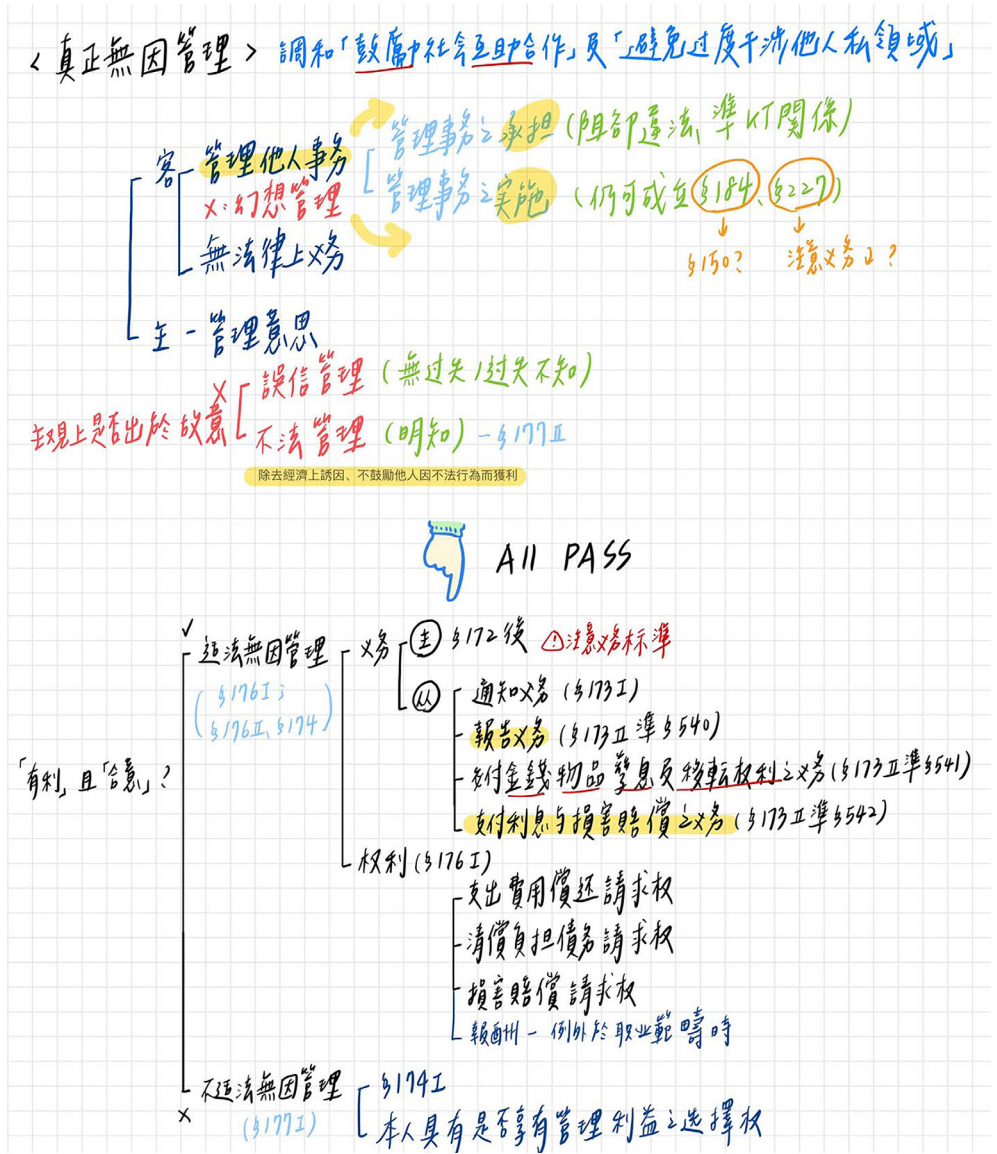 <真正無因管理> 調和「鼓勵社会互助合作」及「避免过度干涉他人私領域」
客 管理他人事務 管理事務之承担 (阻却違法、準KT関係)
X:幻想管理 管理事務之実施 (仍可成立§184、§227)
無法律上义务 §150? 注意义务↓?
主-管理意思
主观上是否出於故意 X 誤信管理 (無过失/过失不知)
不法管理 (明知) -§177Ⅱ
除去經濟上誘因、不鼓勵他人因不法行為而獲利
All PASS
「有利」且「合意」?
✓ 适法無因管理 义务 主 §172後 ⚠注意义务标準
(§176Ⅰ;
§176Ⅱ、§174)
从 通知义务 (§173Ⅰ)
報告义务 (§173Ⅱ準§540)
交付金錢物品孳息及移転权利之义务 (§173Ⅱ準§541)
支付利息与損害賠償之义务 (§173Ⅱ準§542)
权利 (§176Ⅰ)
支出費用償还請求权
清償負担債务請求权
損害賠償請求权
報酬-例外於职业範疇時
X 不适法無因管理 §174Ⅰ
(§177Ⅰ) 本人具有是否享有管理利益之选擇权